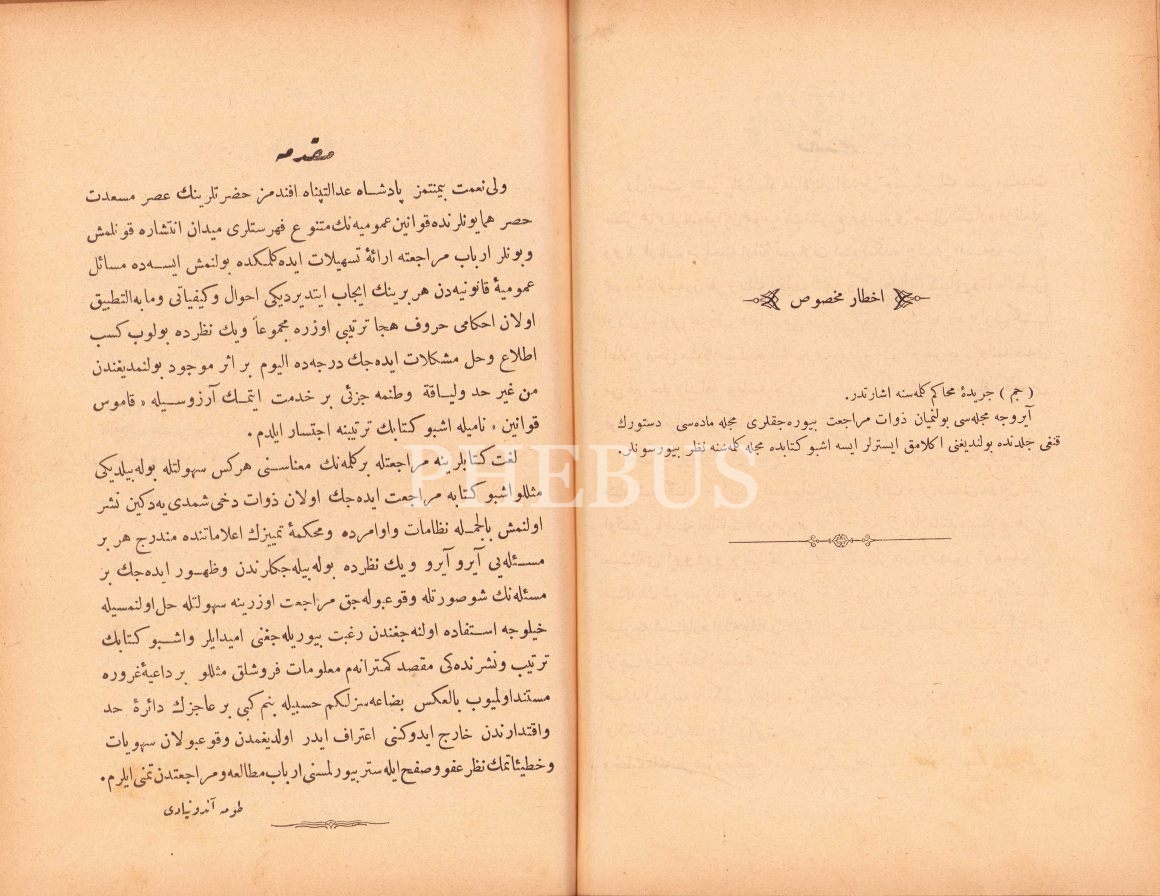 اخطار مخصوص
( جم ) جریدهٔ محاکم کلمه‌سنه اشارتدر.
آیروجه مجله‌سی بولنمیان ذوات مراجعت بیوره‌جقلری مجله ماده‌سی دستورك
قنغی جلدنده بولندیغنی اکلامق ایسترلر ایسه اشبو کتابده مجله کلمه‌سنه نظر بیورسونلر.
مقدمه
ولی‌نعمت بیمنتمز پادشاه عدالتپناه افندمز حضرتلرینك عصر مسعدت
حصر همایونلرنده قوانین عمومیه‌نك متنوع فهرستلری میدان انتشاره قونلمش
وبونلر ارباب مراجعته ارائهٔ تسهیلات ایده‌کلمکده بولنمش ایسه‌ده مسائل
عمومیهٔ قانونیه‌دن هر برینك ایجاب ایتدیردیکی احوال وکیفیاتی ومابه‌التطبیق
اولان احکامی حروف هجا ترتیبی اوزره مجموعاً ویك نظرده بولوب کسب
اطلاع وحل مشکلات ایده‌جك درجه‌ده الیوم بر اثر موجود بولنمدیغندن
من غیر حد ولیاقة وطنمه جزئی بر خدمت ایتمك آرزوسیله « قاموس
قوانین » نامیله اشبو کتابك ترتیبنه اجتسار ایلدم.
لغت کتابلرینه مراجعتله برکلمه‌نك معناسنی هرکس سهولتله بوله‌بیلدیکی
مثللو اشبو کتابه مراجعت ایده‌جك اولان ذوات دخی شمدی‌یه‌دکین نشر
اولنمش بالجمله نظامات واوامرده ومحکمهٔ تمییزك اعلاماتنده مندرج هر بر
مسئله‌یی آیرو آیرو ویك نظرده بوله‌بیله‌جکلرندن وظهور ایده‌جك بر
مسئله‌نك شو صورتله وقوعبوله‌جق مراجعت اوزرینه سهولتله حل اولنمسیله
خیلوجه استفاده اولنه‌جغندن رغبت بیوریله‌جغنی امیدایلر واشبو کتابك
ترتیب ونشرنده‌کی مقصد کمترانه‌م معلومات فروشلق مثللو بر داعیهٔ غروره
مستند اولمیوب بالعکس بضاعه‌سزلکم حسبیله بنم کبی بر عاجزك دائرهٔ حد
واقتدارندن خارج ایدوکنی اعتراف ایدر اولدیغمدن وقوعبولان سهویات
وخطیئاتمك نظر عفو وصفح ایله ستر بیورلمسنی ارباب مطالعه و مراجعتدن تمنی ایلرم.
طومه آندونیادی
PHEBUS